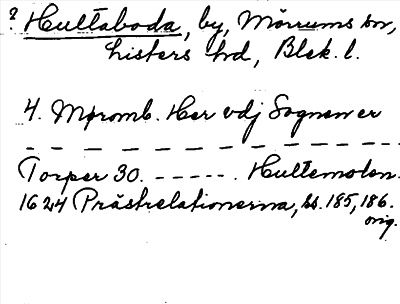 ? Hultaboda, by, Mörrums sn,
Listers hd, Blek. l.
4. Möromb. Her vdj Sognen er
— — — — — — — — — — —
Torper 30. - - - - - . Hultemolen.
1624 Prästrelationerna, ss. 185, 186.
orig.